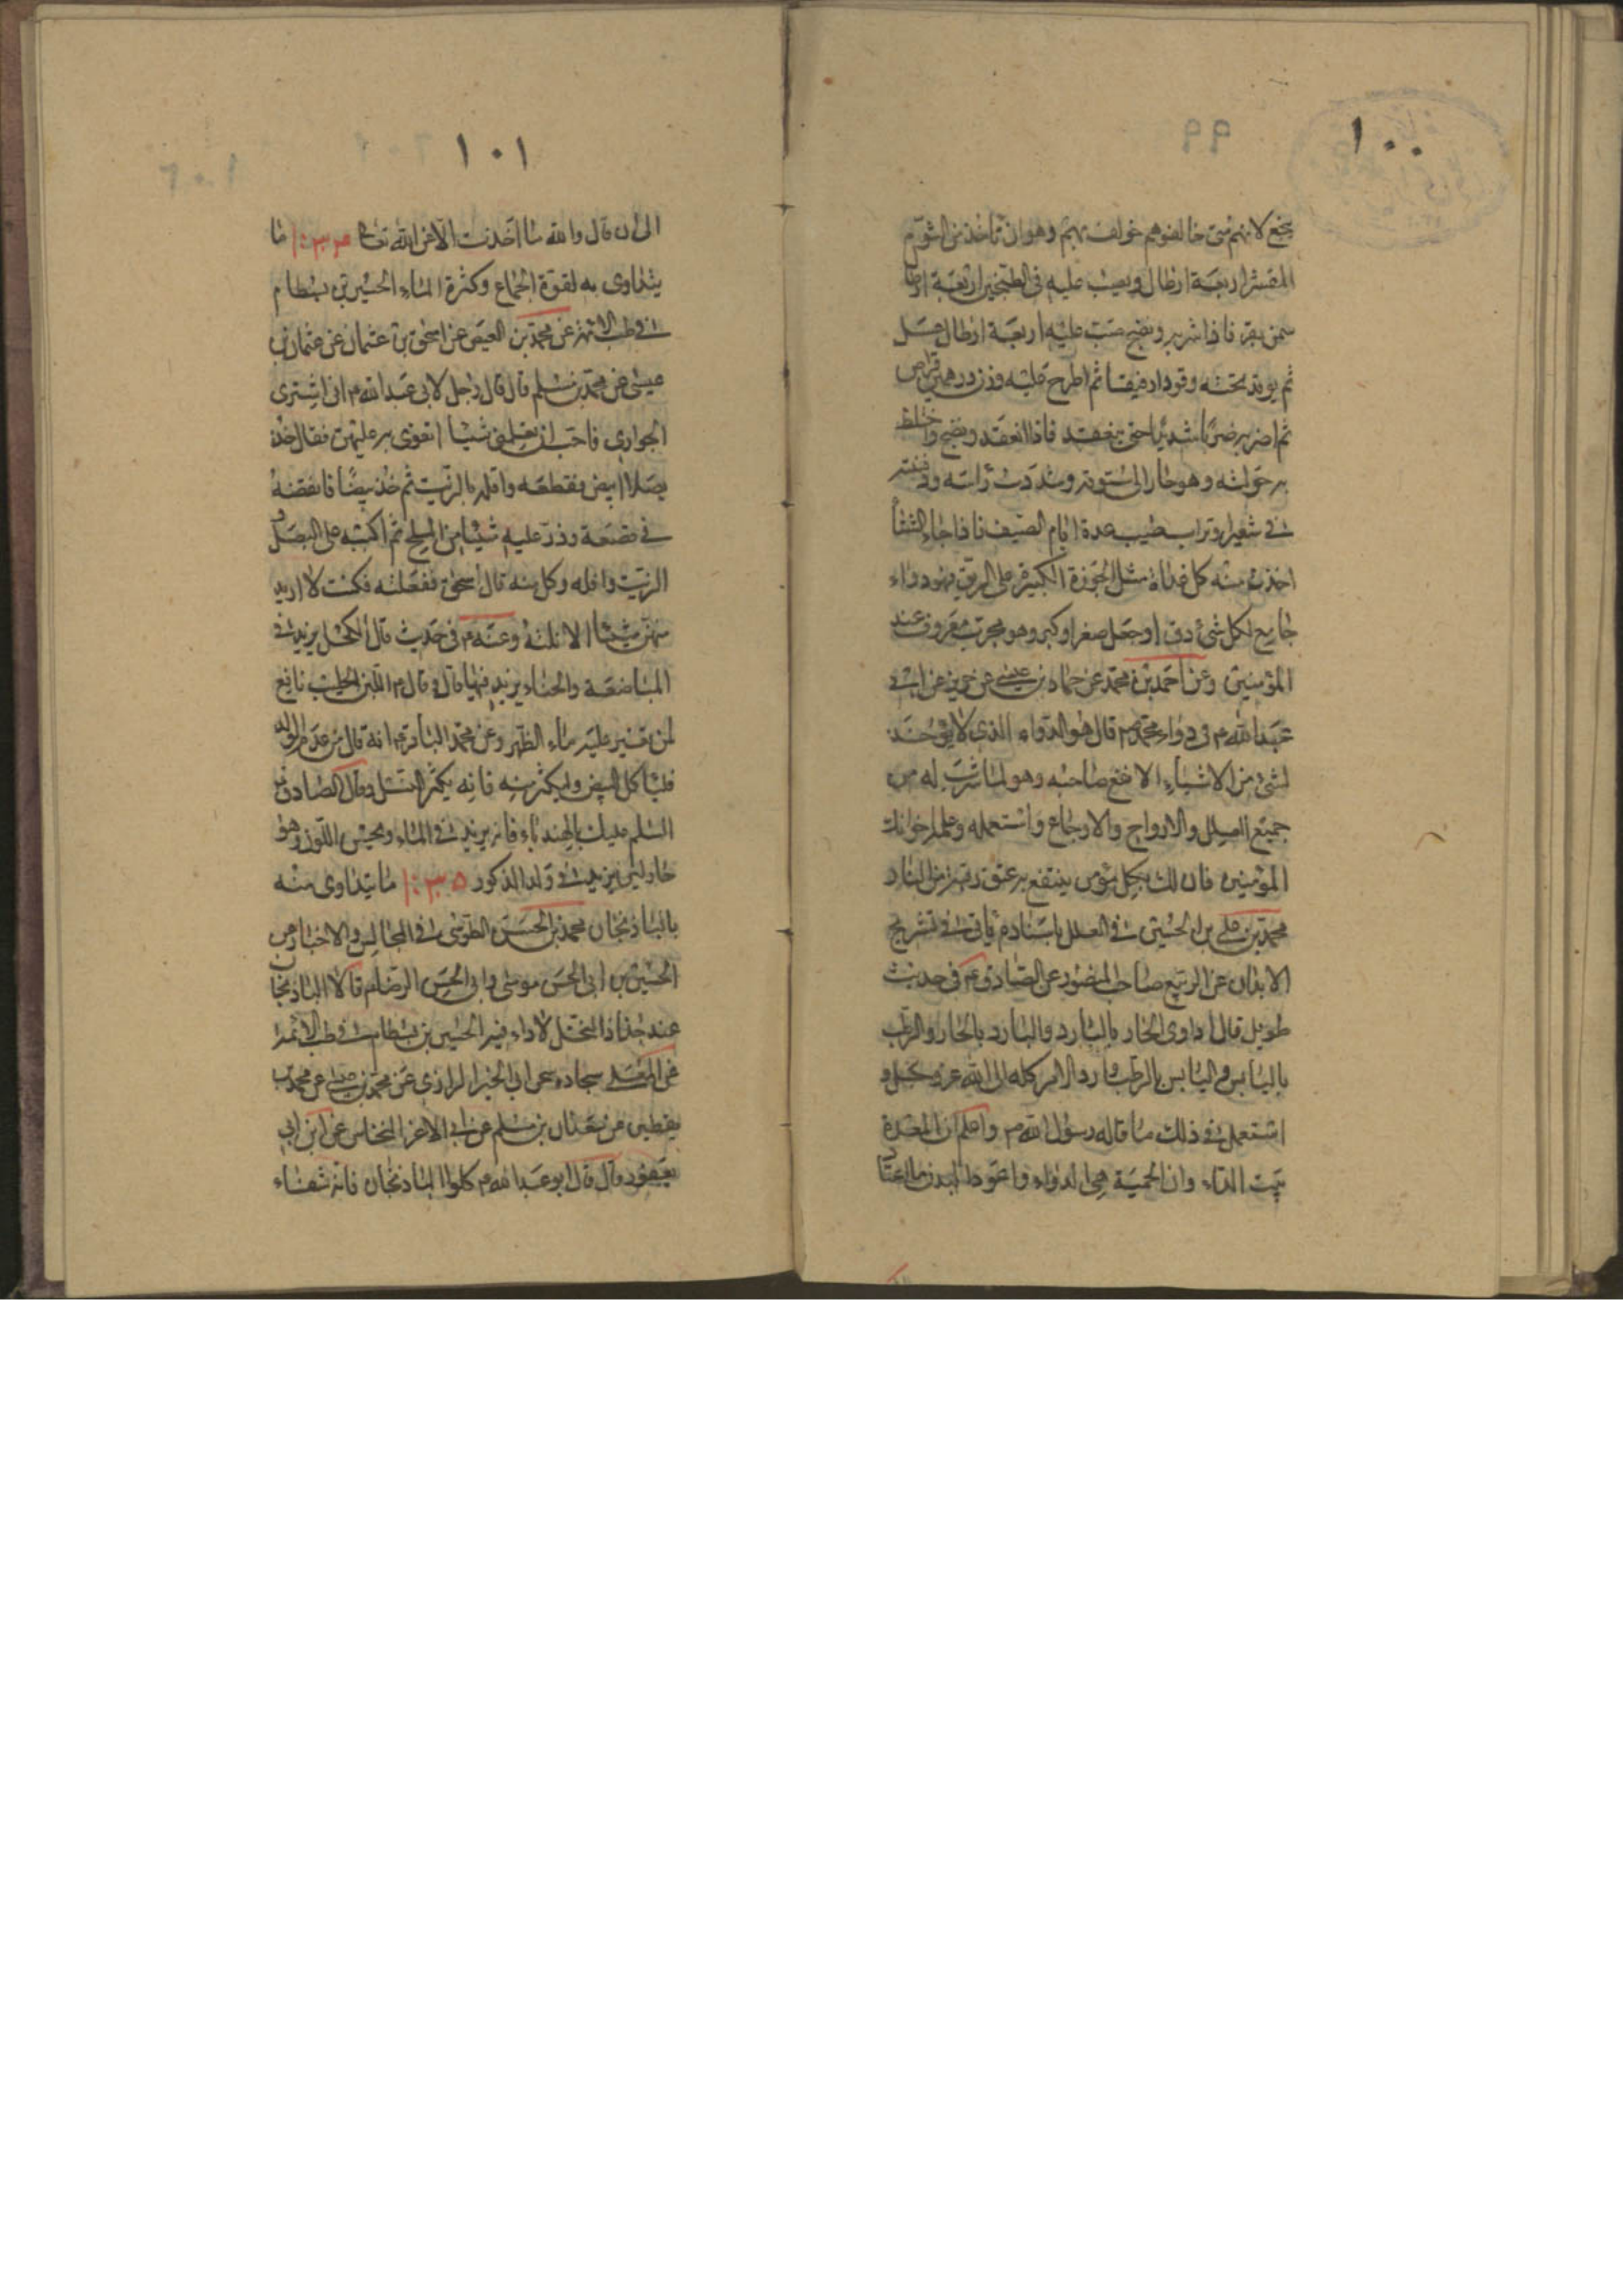 ١٠٠
ينجع لانهم متى خالفوهم خولف بهم وهو ان تأخذ من الثوم
المقشر اربعة ارطال ويصب عليه فى الطنجير اربعة ارطال
سمن بقر فاذا شربه ونضج صب عليه اربعة ارطال عسل
ثم يوقد تحته وقودا رفيقا ثم اطرح عليه وزن درهمين قراص
ثم اضربه ضربا شديدا حتى ينعقد فاذا انعقد ونضج واختلط
به حولته وهو حار الى بستوقة وشددت رأسه ودفنته
فى شعير او تراب طيب عدة ايام الصيف فاذا جاء الشتأ
اخذت منه كل غداة مثل الجوزة الكبيرة على الريق فهو دواء
جامع لكل شئ دق او جعل صغر او كبر وهو مجرب معروف عند
المؤمنين وعن احمد بن محمد عن حماد بن عيسى عن حريز عن ابى
عبد الله م فى دواء محمد م قال هو الدواء الذى لا يؤخذ
لشئ من الاشياء الا نفع صاحبه وهو لما شرب له من
جميع العلل والارواح والاوجاع واستعمله وعلمه اخوانك
المؤمنين فان لك بكل مؤمن ينتفع به عتق رقبة من النار
محمد بن على بن الحسين فى العلل باسناد م ياتى فى تشريح
الابدان عن الربيع صاحب المنصور عن الصادق م فى حديث
طويل قال اداوى الحار بالبارد والبارد بالحار والرطب
باليابس واليابس بالرطب وارد الامر كله الى الله عز وجل و
استعمل فى ذلك ما قاله رسول الله م واعلم ان المعدة
بيت الداء وان الحمية هى الدواء واعود البدن ما اعتا
١٠١
الى ان قال والله ما اخذت الا عن الله تعالى ١٠٣٤ ما
يتداوى به لقوة الجماع وكثرة الماء الحسين بن بسطام
فى طب الائمة عن محمد بن العيص عن اسحق بن عثمان عن عثمان بن
عيسى عن محمد بن مسلم قال قال رجل لابى عبد الله م انى اشترى
الجوارى فاحب ان تعلمنى شيئا اتقوى به عليهن فقال خذ
بصلا ابيض فقطعه واقله بالزيت ثم خذ بيضا فافقصه
فى قصعة وذر عليه شيئا من الملح ثم اكببه على البصل و
الزيت واقله وكل منه قال اسحق ففعلته فكنت لا اريد
منهن شيئا الا نلته وعنه م فى حديث قال الكحل يزيد فى
المباضعة والحناء يزيد فيها قال وقال م اللبن الحليب نافع
لمن تغير عليه ماء الظهر وعن محمد الباقر م انه قال من عدم الولد
فليأكل البيض وليكثر منه فانه يكثر النسل وقال الصادق
السلم عليك بالهندباء فانه يزيد فى الماء ويحسن اللون وهو
حار لين يزيد فى ولد الذكور ١٠٣٥ ما يتداوى منه
بالباذنجان محمد بن الحسن الطوسى فى المجالس والاخبار عن
الحسين بن ابى الحسن موسى وابى الحسن الرضا م قالا الباذنجان
عند جذاذ النخل لا داء فيه الحسين بن بسطام فى طب الائمة
عن المعلى سجاده عن ابى الخير الرازى عن محمد بن عيسى عن محمد بن
يقطين عن سعدان بن مسلم عن ابى الاغر النخاس عن ابن ابى
يعفور قال قال ابو عبد الله م كلوا الباذنجان فانه شفاء